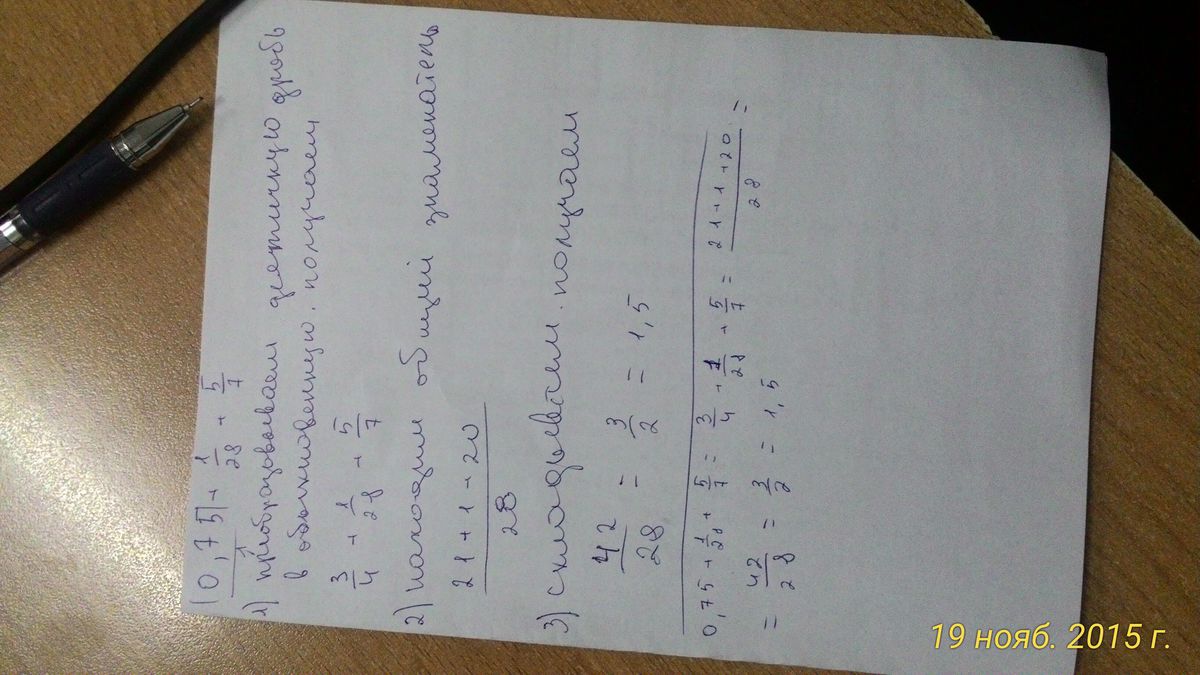 0,75 + 1/28 + 5/7
1) приобразовываем десятичную дробь
в обыкновенную. получаем
3/4 + 1/28 + 5/7
2) находим общий знаменатель
21 + 1 + 20 / 28
3) складываем. получаем
42/28 = 3/2 = 1,5
0,75 + 1/28 + 5/7 = 3/4 + 1/28 + 5/7 = 21+1+20 / 28 =
= 42/28 = 3/2 = 1,5
19 нояб. 2015 г.